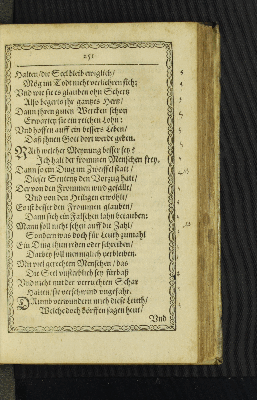 251
Halten / die Seel bleib ewiglich /
Mög im Todt nicht verliehren sich:
Und wie sie es glauben ohn Schertz
Also begerts jhr gantzes Hertz /
Dann jhren guten Wercken schon
Erwartet sie ein reichen Lohn:
Und hoffen auff ein bessers Leben /
Daß jhnen Gott dort werde geben.
Nach welcher Meynung besser sey?
Ich halt der frommen Menschen frey.
Dann so ein Ding im Zweiffel statt /
Dieser Sententz den Vorzug hatt /
Der von den Frommen wird gefällt /
Und von den Heiligen erwöhlt /
Es ist besser den Frommen glauben /
Dann sich ein Falschen lahn betauben:
Mann soll nicht sehen auff die Zahl /
Sondern was doch für Leuth zumahl
Ein Ding thuen reden oder schreiben /
Darbey soll menniglich verbleiben.
Mit viel gerechten Menschen / das
Die Seel unsterblich sey fürbaß
Und nicht mit der verruchten Schar
Halten / sie verschwind ungefahr.
Darumb verwundern mich diese Leuth /
Welche doch dörffen sagen heut /
Und